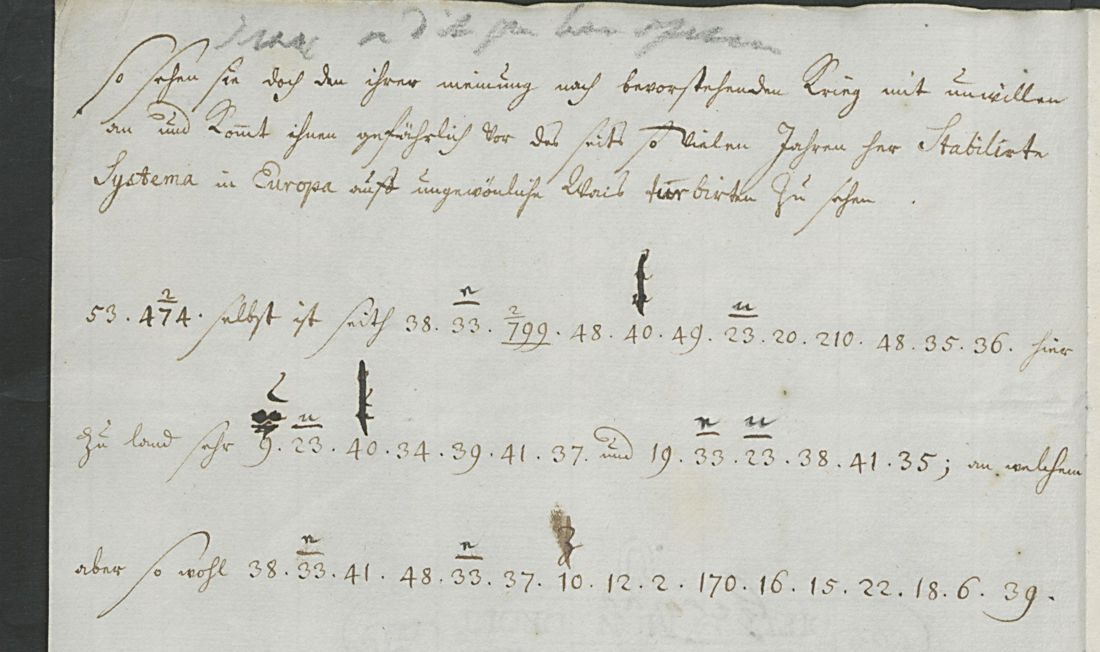 so sehen sie doch den ihrer meinung nach bevorstehenden Krieg mit unwillen
an und Komt ihnen gefährlich vor des seits so vielen Jahren her Stabilirte
Systema in Europa auff ungewönliche Wais turbirten Zu sehen .
2 n n
53 . 474 . selbst ist seith 38 . 33 . 2 799 . 48 . 40 . 49 . 23 . 20 . 210 . 48 . 35 . 36 . hier
n n n
Zu land sehr 9 . 23 . 40 . 34 . 39 . 41 . 37 . und 19 . 33 . 23 . 38 . 41 . 35 ; an welchem
n n
aber so wohl 38 . 33 . 41 . 48 . 33 . 37 . 10 . 12 . 2 . 170 . 16 . 15 . 22 . 18 . 6 . 39 .